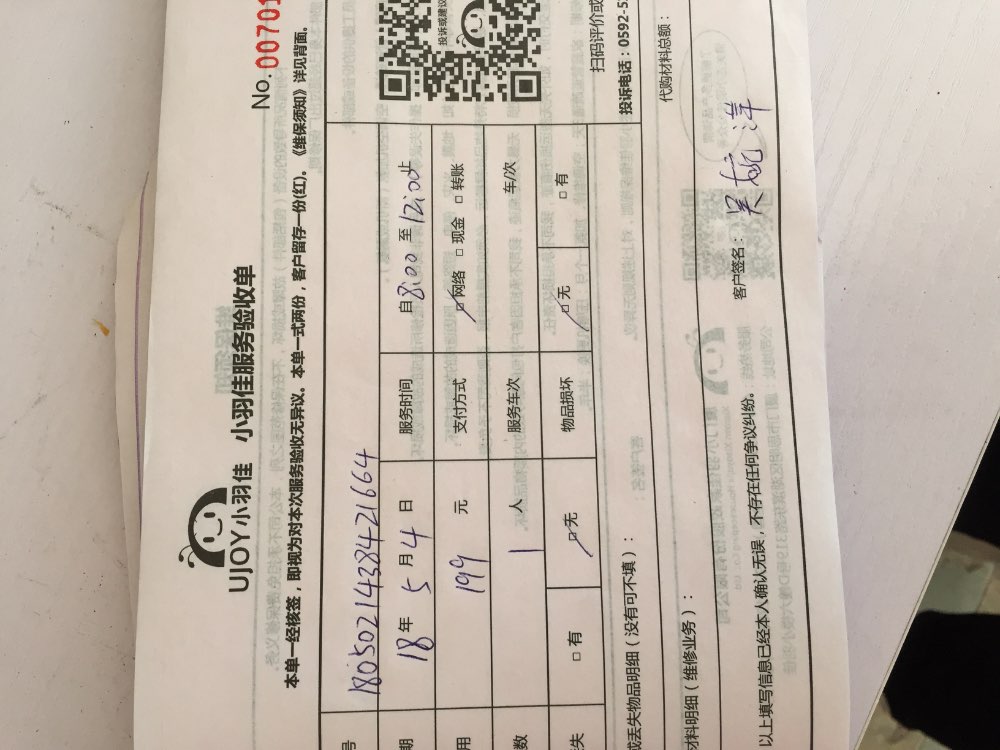 No. 00701
投诉或建议
UJOY小羽佳 小羽佳服务验收单
本单一经核签，即视为对本次服务验收无异议。本单一式两份，客户留存一份(红)。《维保须知》详见背面。
扫码评价或
投诉电话：0592-5
号 18050214384-21664
期 18年5月4日 服务时间 自8:00至12:00止
用 199 元 支付方式 □网络 □现金 □转账
数 1 人 服务车次 车/次
失 □有 □无 物品损坏 □无 □有
或丢失物品明细（没有可不填）：
材料明细（维修业务）： 代购材料总额：
以上填写信息已经本人确认无误，不存在任何争议纠纷。 客户签名：